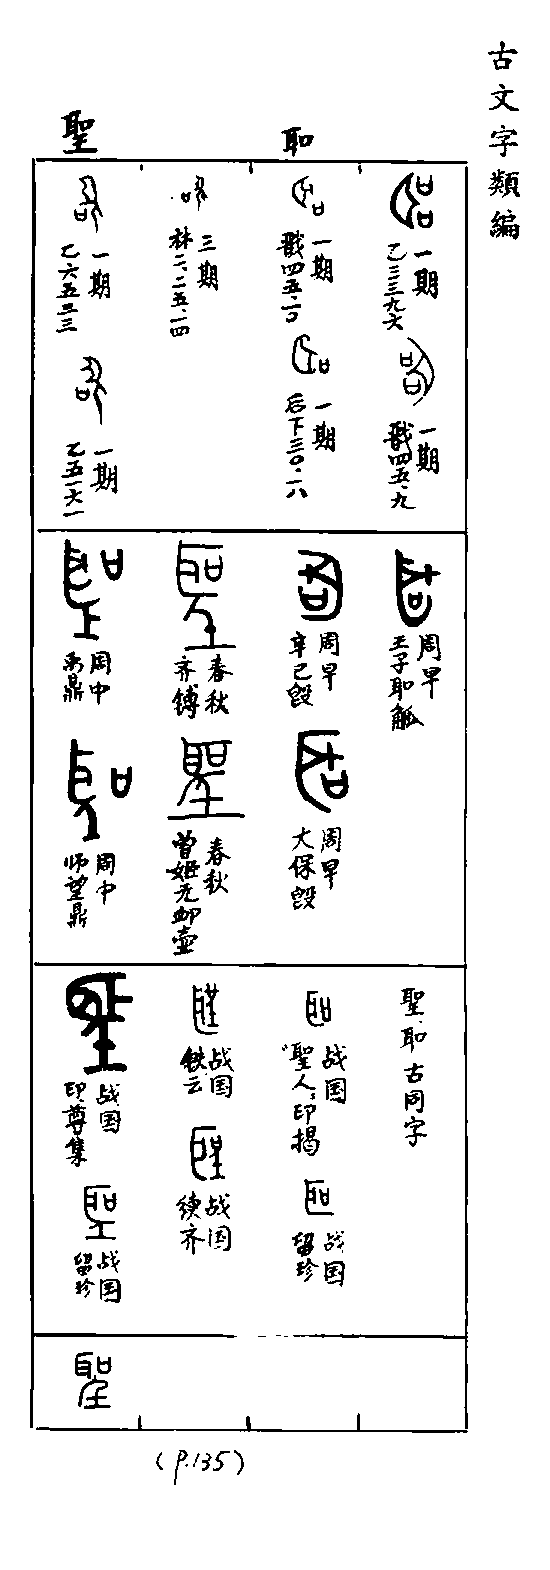 古文字類編
耶
聖
一期
乙三三九六
一期
戩四五·九
一期
戩四五·一〇
一期
后下三〇·一八
三期
林二·二五·一四
一期
乙六五三三
一期
乙五一六一
周早
王子耶觚
周早
辛巳毁
周早
大保毁
春秋
齐镈
春秋
曾姬无卹壶
周中
禹鼎
周中
师望鼎
聖、耶古同字
战国
“聖人”印揭
战国
留珍
战国
铁云
战国
续齐
战国
印尊集
战国
留珍
(P.135)